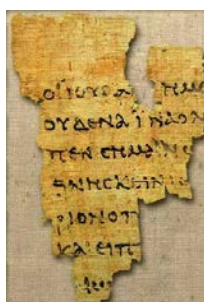 ΟΙ ΙΟΥΔΑΙ ΗΜ
ΟΥΔΕΝΑ ΙΝΑ Ο Λ
ΠΕΝ CΗΜΑΙΝΩ
ΘΝΗCΚΕΙΝ Ι
ΡΙΟΝ Ο Π
ΚΑΙ ΕΙΠ